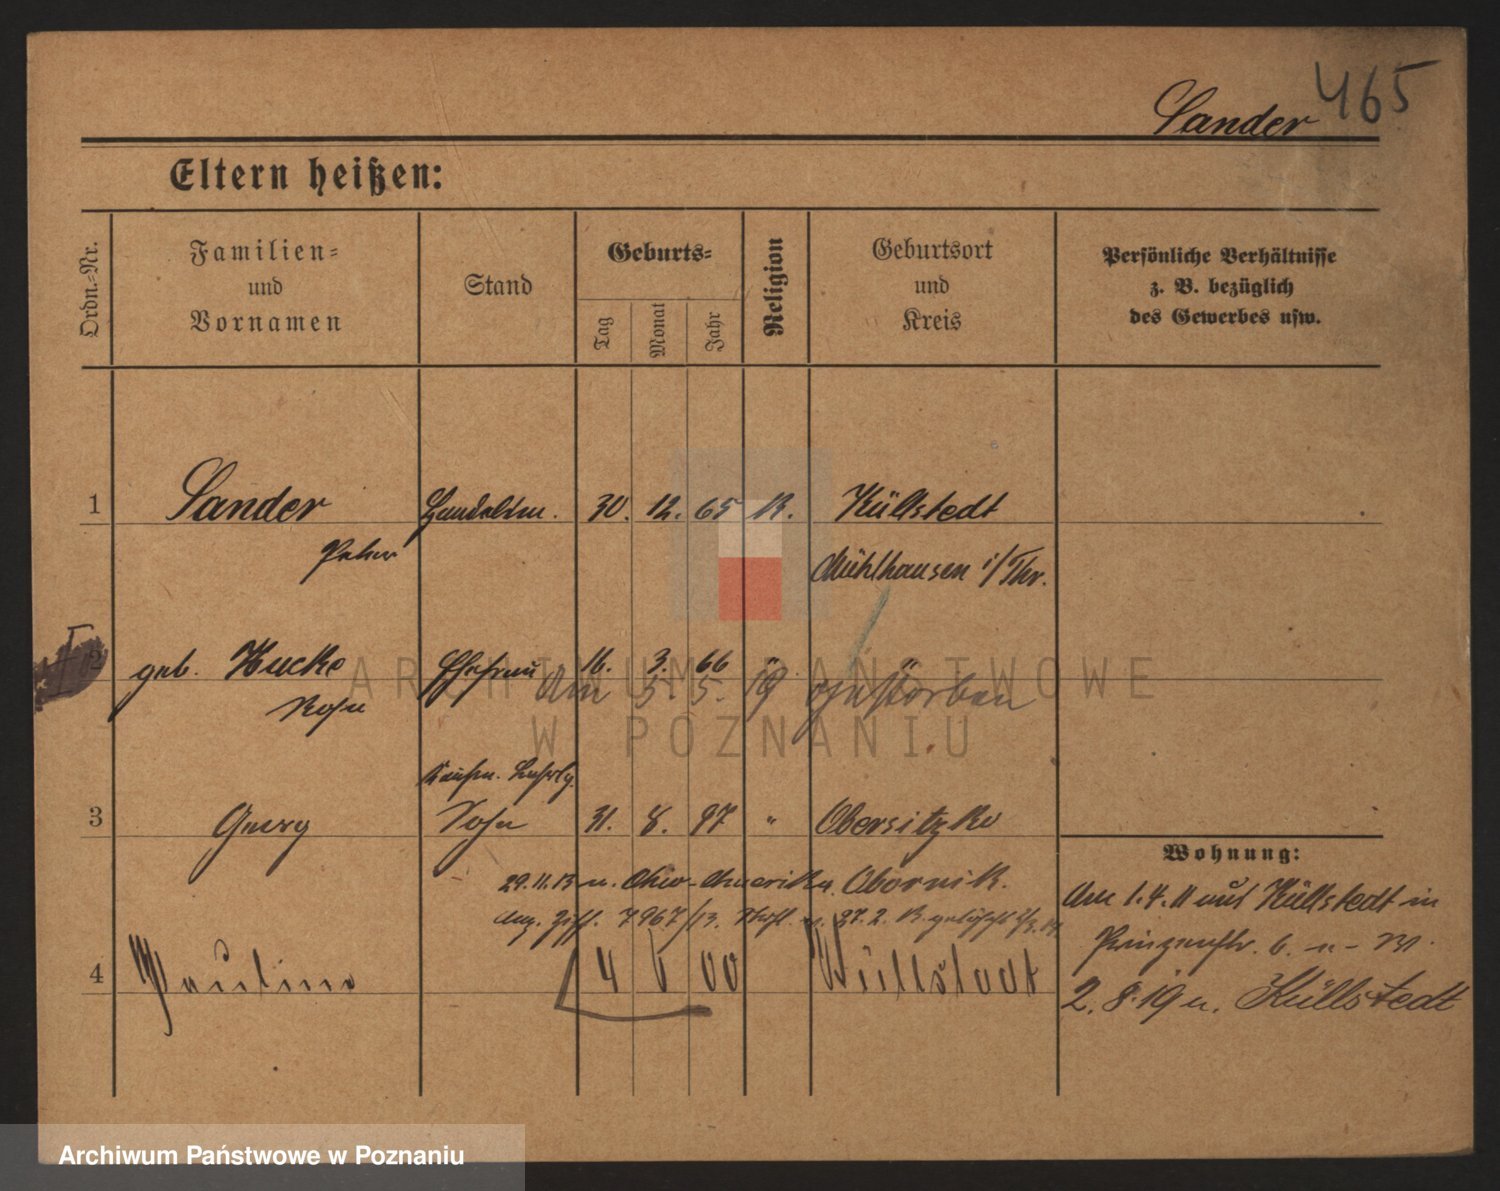 465
Sander
Eltern heißen:
Ordn.-Nr.
Familien-
und
Vornamen
Stand
Geburts-
Tag
Monat
Jahr
Religion
Geburtsort
und
Kreis
Persönliche Verhältnisse
z. B. bezüglich
des Gewerbes usw.
1 Sander Handelsm. 30. 12. 65 K. Küllstedt
Peter Mühlhausen i/Thr.
2 geb. Hucke Ehefrau 16. 3. 66 " "
Rosa
Am 5. 5. 19 gestorben
Kaufm. Lehrlg.
3 Georg Sohn 31. 8. 97 " Obersitzko
29.11.13 n. Amerika Obornik.
7967/13. 27. 2.
4 Pauline 4 6 00 Küllstedt
Wohnung:
Am 1.4.11 aus Küllstedt in
Prinzenstr. 6.
2. 8. 19 n. Küllstedt
ARCHIWUM PAŃSTWOWE
W POZNANIU
Archiwum Państwowe w Poznaniu